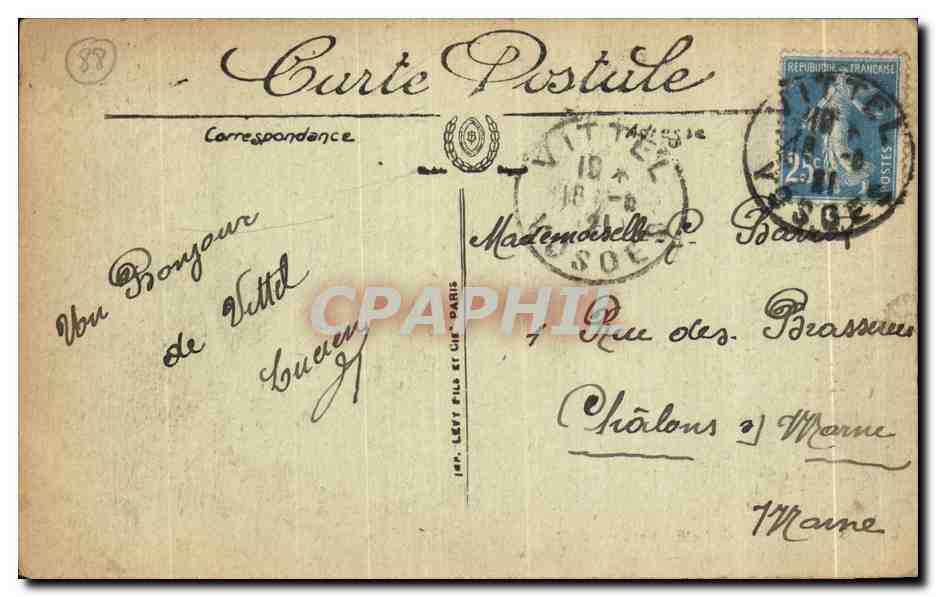 88
Carte Postale
Correspondance
Adresse
REPUBLIQUE FRANÇAISE
25c
POSTES
VITTEL
VOSGES
18 *
18 -6
21
VITTEL
VOSGES
18 *
18 -6
21
Un Bonjour
de Vittel
Lucien
IMP. LÉVY FILS ET CIE PARIS
CPAPHIL
Mademoiselle
Rue des Brasseries
Châlons s/ Marne
Marne